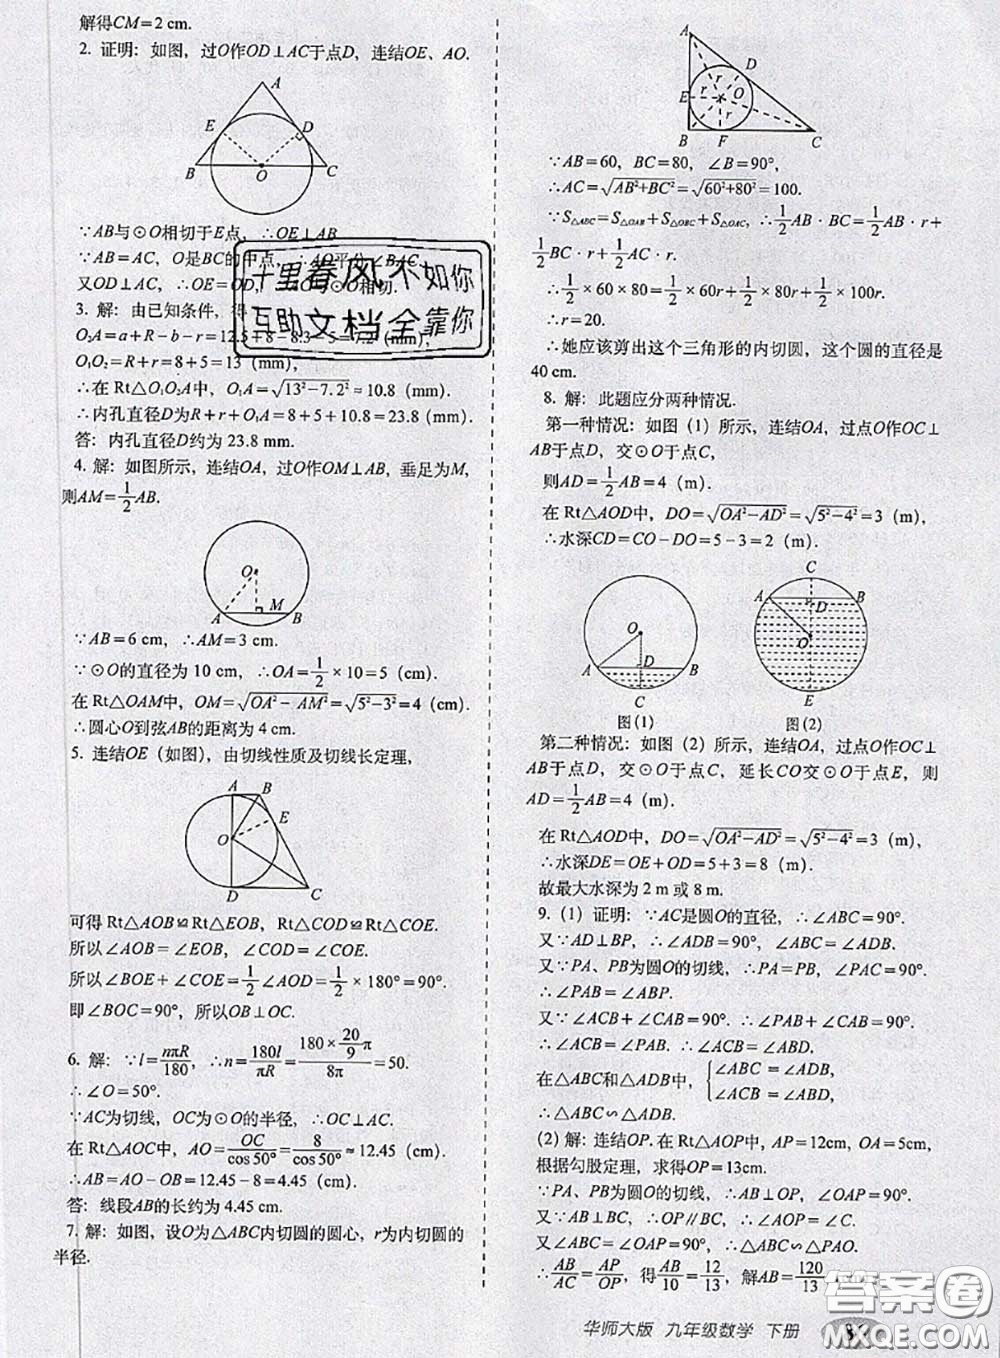 解得CM=2 cm.
2. 证明：如图，过O作OD⊥AC于点D，连结OE、AO.
A
E
D
B
O
C
∵AB与⊙O相切于E点，∴OE⊥AB
∵AB=AC，O是BC的中点，∴AO平分∠BAC.
又OD⊥AC，∴OE=OD，与⊙O相切.
3. 解：由已知条件，得
O₂A=a+R-b-r=12.5+8-8.3-5=7.2（mm），
O₁O₂=R+r=8+5=13（mm），
∴在 Rt△O₁O₂A中，O₁A=√(13²-7.2²)≈10.8（mm）.
∴内孔直径D为R+r+O₁A=8+5+10.8=23.8（mm）.
答：内孔直径D约为 23.8 mm.
4. 解：如图所示，连结OA，过O作OM⊥AB，垂足为M，
则AM=1/2AB.
O
M
A
B
∵AB=6 cm，∴AM=3 cm.
∵⊙O的直径为 10 cm，∴OA=1/2×10=5（cm）.
在 Rt△OAM中，OM=√(OA²-AM²)=√(5²-3²)=4（cm）.
∴圆心O到弦AB的距离为 4 cm.
5. 连结OE（如图），由切线性质及切线长定理，
A
B
E
O
D
C
可得 Rt△AOB≌Rt△EOB，Rt△COD≌Rt△COE.
所以∠AOB=∠EOB，∠COD=∠COE.
所以∠BOE+∠COE=1/2∠AOD=1/2×180°=90°.
即∠BOC=90°，所以OB⊥OC.
6. 解：∵l=nπR/180，∴n=180l/πR=(180×20/9π)/8π=50.
∴∠O=50°.
∵AC为切线，OC为⊙O的半径，∴OC⊥AC.
在 Rt△AOC中，AO=OC/cos50°=8/cos50°≈12.45（cm）.
∴AB=AO-OB=12.45-8=4.45（cm）.
答：线段AB的长约为 4.45 cm.
7. 解：如图，设O为△ABC内切圆的圆心，r为内切圆的
半径.
十里春风不如你
互助文档全靠你
A
D
r
r
O
E
r
B
F
C
∵AB=60，BC=80，∠B=90°，
∴AC=√(AB²+BC²)=√(60²+80²)=100.
∵S△ABC=S△OAB+S△OBC+S△OAC，∴1/2AB·BC=1/2AB·r+
1/2BC·r+1/2AC·r.
∴1/2×60×80=1/2×60r+1/2×80r+1/2×100r.
∴r=20.
∴她应该剪出这个三角形的内切圆，这个圆的直径是
40 cm.
8. 解：此题应分两种情况.
第一种情况：如图（1）所示，连结OA，过点O作OC⊥
AB于点D，交⊙O于点C，
则AD=1/2AB=4（m）.
在 Rt△AOD中，DO=√(OA²-AD²)=√(5²-4²)=3（m），
∴水深CD=CO-DO=5-3=2（m）.
O
D
A
B
C
图(1)
C
A
D
B
O
E
图(2)
第二种情况：如图（2）所示，连结OA，过点O作OC⊥
AB于点D，交⊙O于点C，延长CO交⊙O于点E，则
AD=1/2AB=4（m）.
在 Rt△AOD中，DO=√(OA²-AD²)=√(5²-4²)=3（m），
∴水深DE=OE+OD=5+3=8（m）.
故最大水深为 2 m 或 8 m.
9.（1）证明：∵AC是圆O的直径，∴∠ABC=90°.
又∵AD⊥BP，∴∠ADB=90°，∠ABC=∠ADB.
又∵PA、PB为圆O的切线，∴PA=PB，∠PAC=90°.
∴∠PAB=∠ABP.
又∵∠ACB+∠CAB=90°.∴∠PAB+∠CAB=90°.
∴∠ACB=∠PAB.∴∠ACB=∠ABD.
在△ABC和△ADB中，{∠ABC=∠ADB, ∠ACB=∠ABD,
∴△ABC∽△ADB.
(2) 解：连结OP. 在 Rt△AOP中，AP=12cm，OA=5cm，
根据勾股定理，求得OP=13cm.
∵PA、PB为圆O的切线，∴AB⊥OP，∠OAP=90°.
又∵AB⊥BC，∴OP∥BC，∴∠AOP=∠C.
又∵∠ABC=∠PAO=90°，∴△ABC∽△PAO.
∴AB/AC=AP/OP，得AB/10=12/13，解AB=120/13
华师大版 九年级数学 下册
答案圈
MXQE.COM